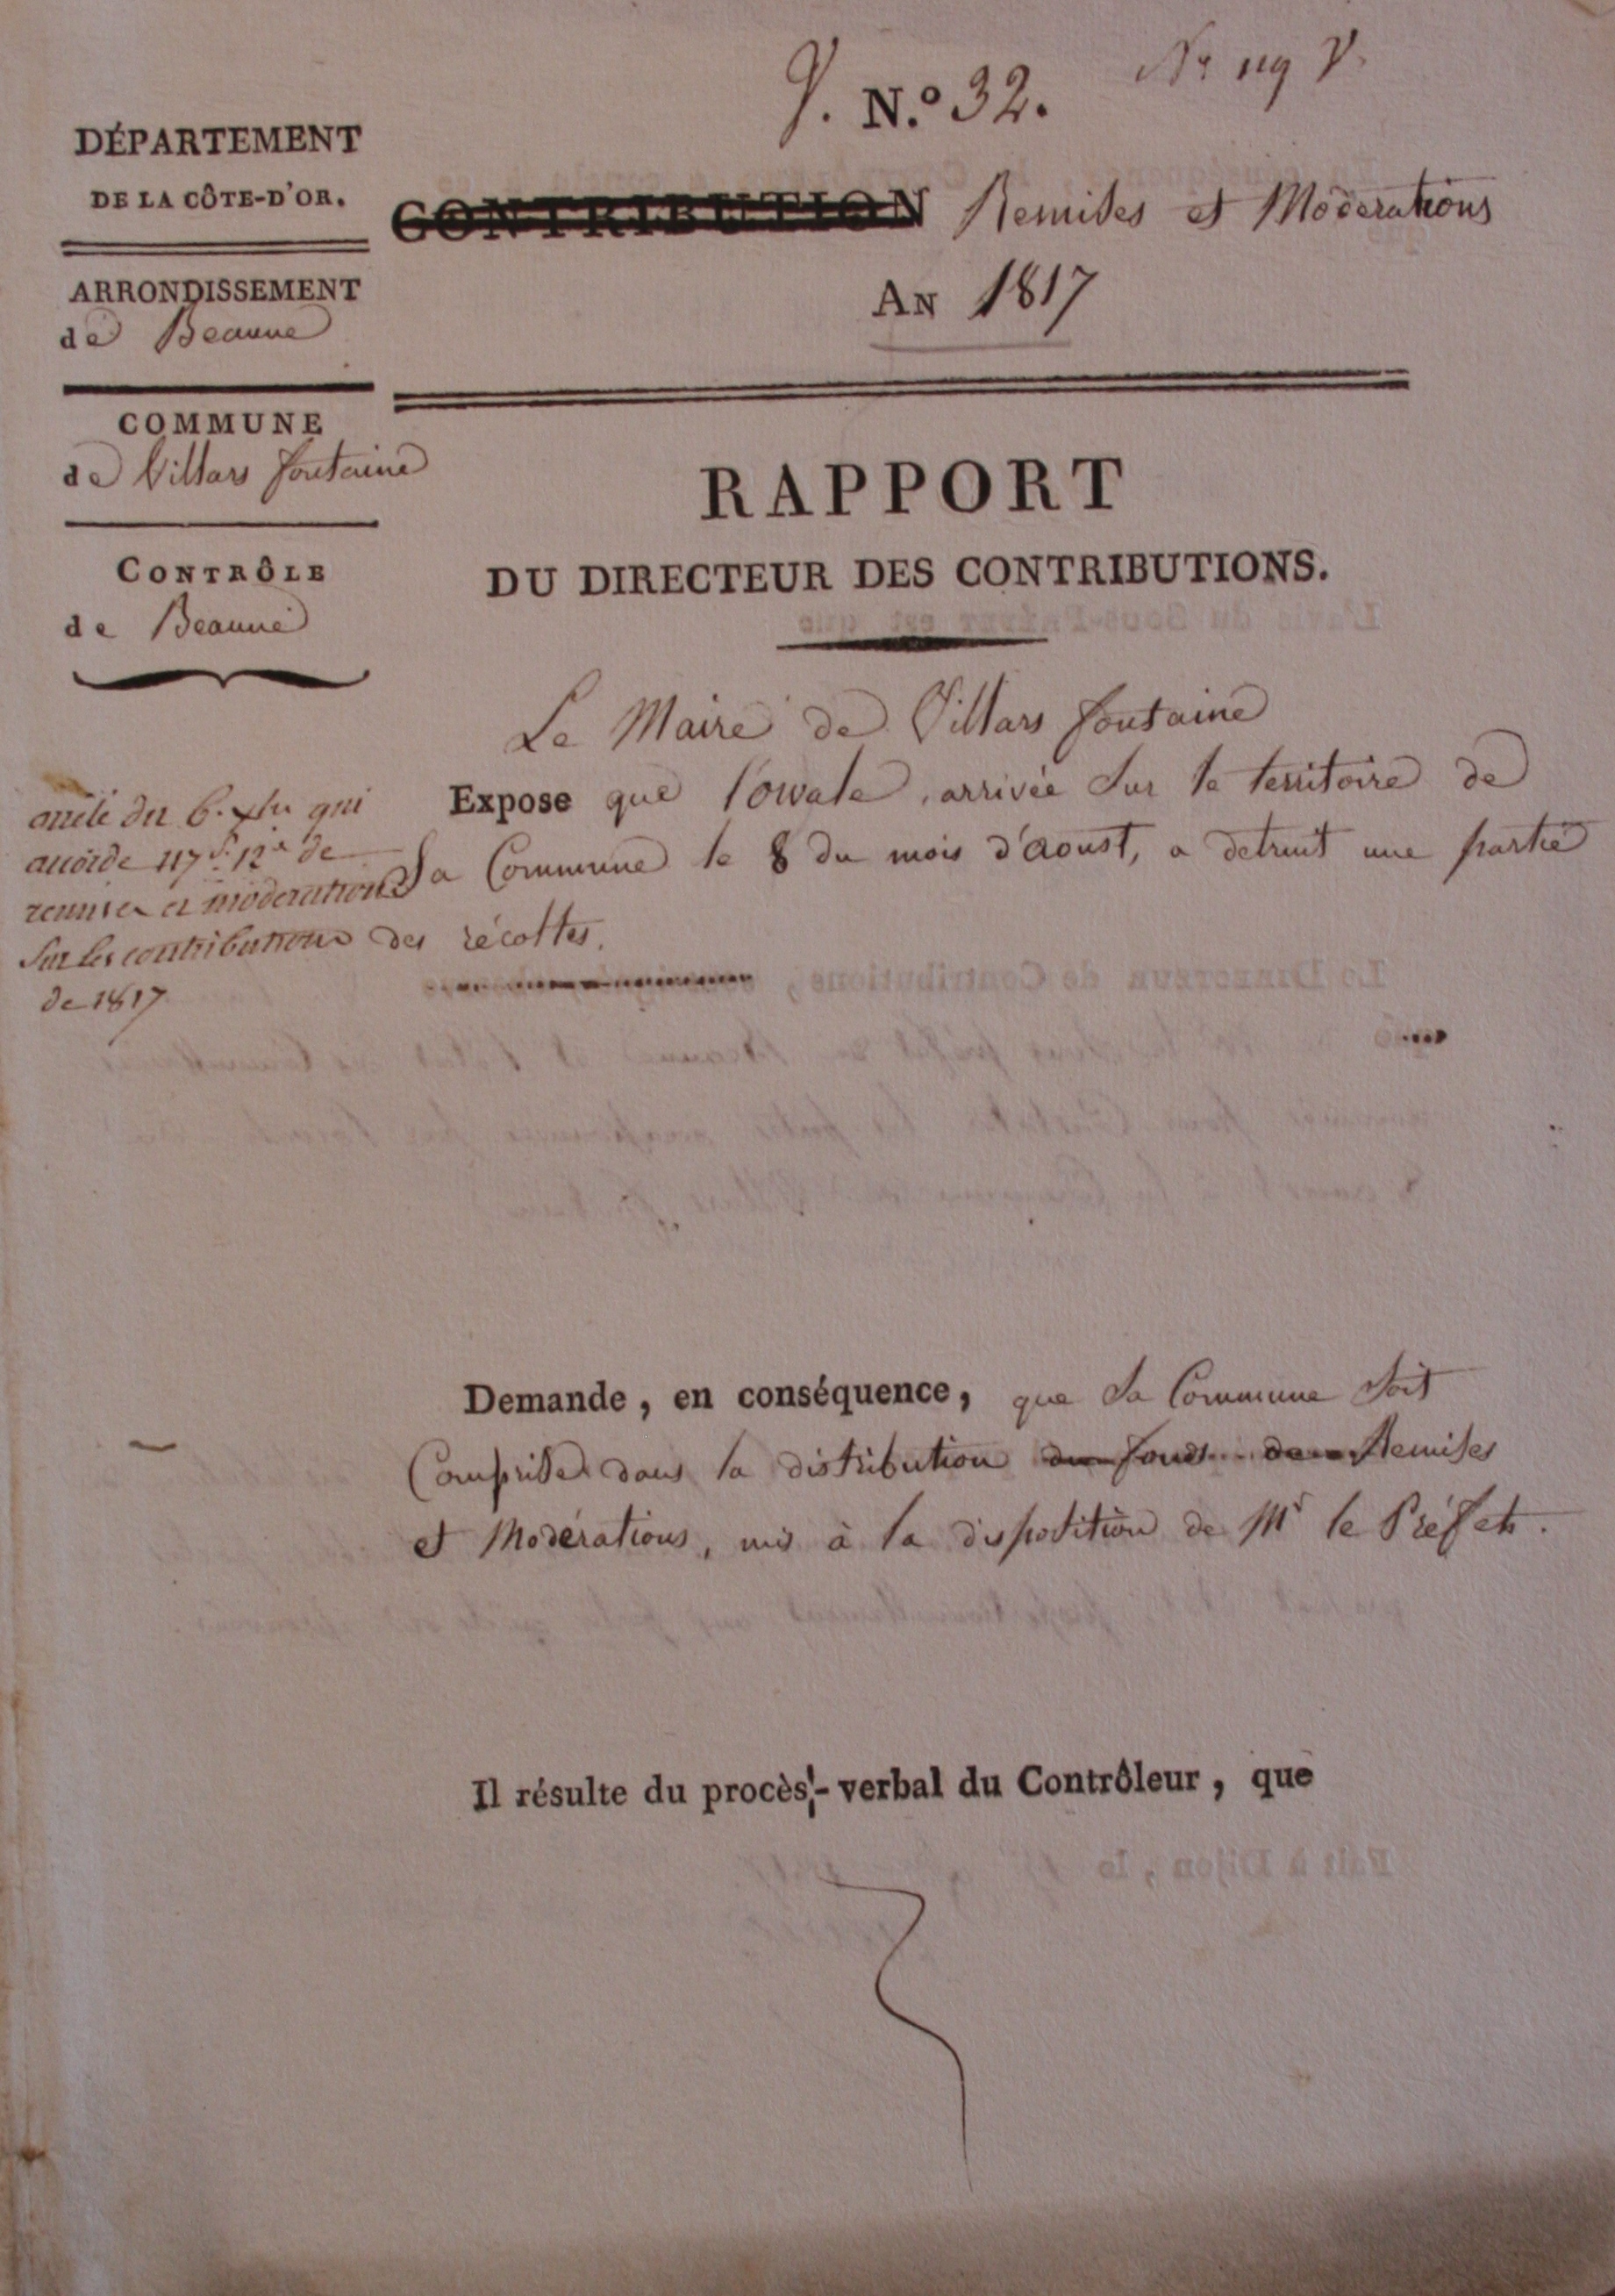 V. N.º 32. Nº 119 V.
DÉPARTEMENT
DE LA CÔTE-D'OR.
CONTRIBUTION Remises et Moderations
AN 1817
ARRONDISSEMENT
de Beaune
COMMUNE
de Villars fontaine
CONTRÔLE
de Beaune
RAPPORT
DU DIRECTEUR DES CONTRIBUTIONS.
Le Maire de Villars fontaine
Expose que l'orvale, arrivée sur le territoire de
sa Commune le 8 du mois d'aoust, a detruit une partie
des récoltes.
arrêté du 6. xbre qui
accorde 117f. 12c de
remises et moderations
sur les contributions
de 1817
Demande, en conséquence, que sa Commune soit
Comprise dans la distribution du fonds de Remises
et Modérations, mis à la disposition de Mr le Préfet.
Il résulte du procès-verbal du Contrôleur, que